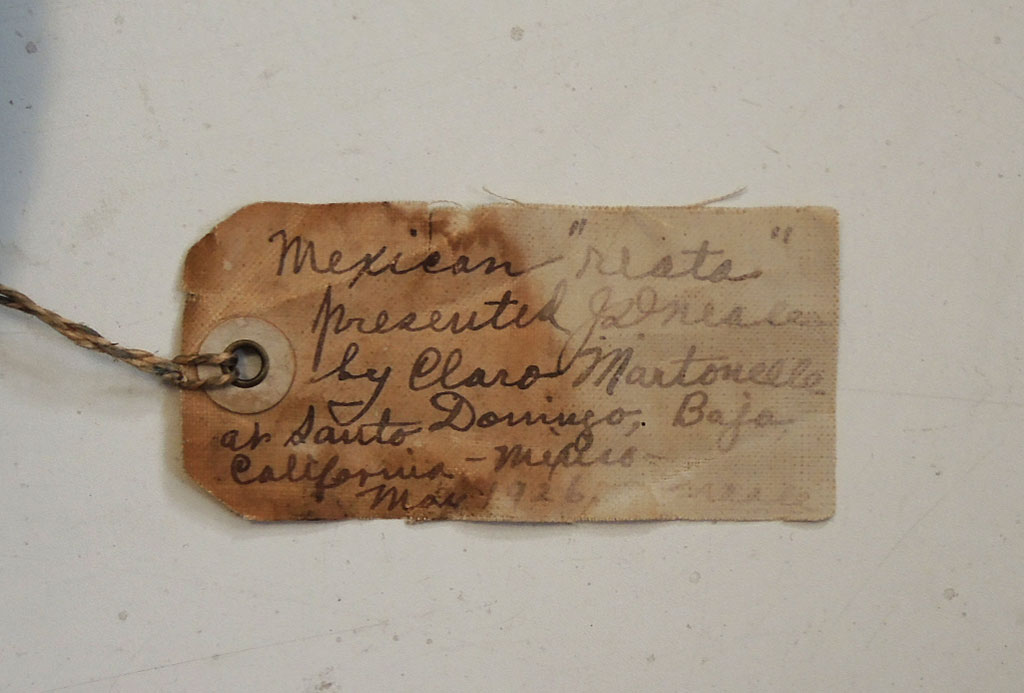 Mexican "reata"
presented
by Claro Martorello
at Santo Domingo, Baja
California - Mexico -
May 1926